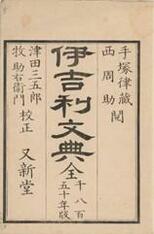 手塚律蔵
西周助 閲
伊吉利文典 全
千八百
五十年版
津田三五郎
牧助右衛門 校正
又新堂